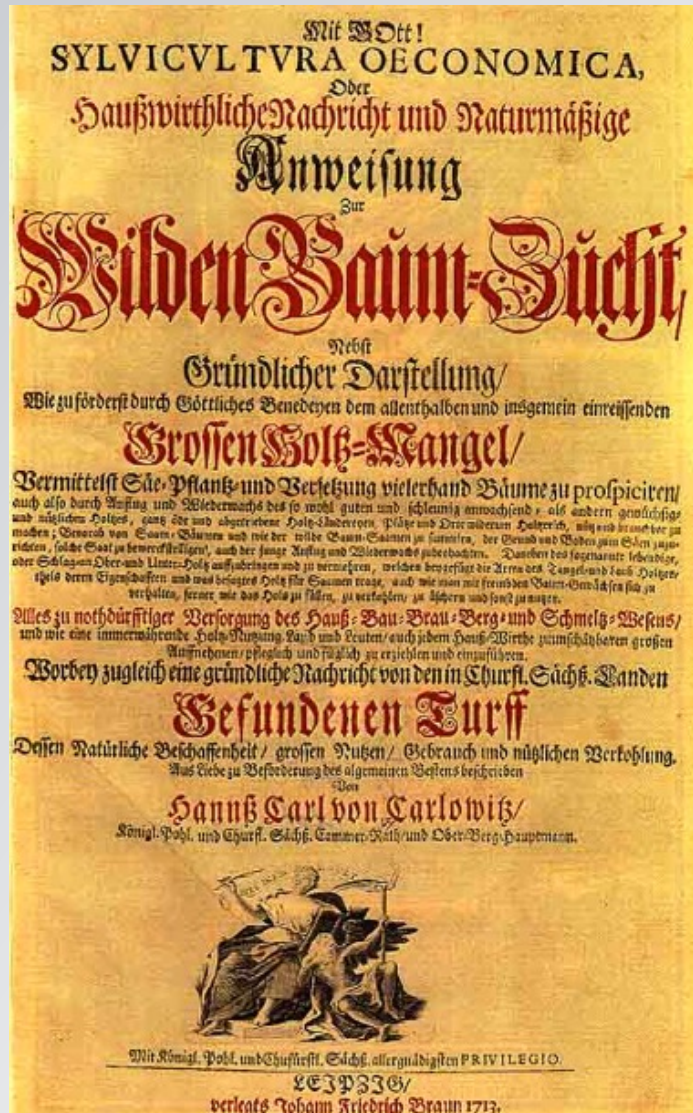 Mit GOtt!
SYLVICVLTVRA OECONOMICA,
Oder
Haußwirthliche Nachricht und Naturmäßige
Anweisung
Zur
Wilden Baum-Zucht,
Nebst
Gründlicher Darstellung/
Wie zu förderst durch Göttliches Benedeyen dem allenthalben und insgemein einreissenden
Grossen Holtz-Mangel/
Vermittelst Säe-Pflantz- und Versetzung vielerhand Bäume zu prospiciren/
auch also durch Anflug und Wiederwachs des so wohl guten und schleunig anwachsend, als andern gewüchsig-
und nützlichen Holtzes, gantz öde und abgetriebene Holtz-Ländereyen, Plätze und Orte wiederum Holtzreich, nütz und brauchbar zu
machen; Benorab von Saam-Bäumen und wie der wilde Baum-Saamen zu sammlen, der Grund und Boden zum Säen zuzu-
richten, solche Saat zu bewerckstelligen, auch der junge Anflug und Wiederwachs zu beobachten. Daneben das sogenannte lebendige,
oder Schlag-an Ober- und Unter-Holtz aufzubringen und zu vermehren, welchen beygefügt die Arten des Tangel- und Laub-Holtzes,
theils deren Eigenschafften und was besagtes Holtz für Saamen trage, auch wie man mit frembden Baum-Gewächsen sich zu
verhalten, ferner wie das Holtz zu fällen, zu verkohlen, zu äschern und sonst zu nutzen.
Alles zu nothdürfftiger Versorgung des Hauß- Bau- Brau- Berg- und Schmeltz-Wesens/
und wie eine immerwährende Holtz-Nutzung, Land und Leuten/ auch jedem Hauß-Wirthe zu unschätzbaren großen
Auffnehmen/ pfleglich und füglich zu erziehlen und einzuführen.
Worbey zugleich eine gründliche Nachricht von den in Churfl. Sächß. Landen
Gefundenen Turff
Dessen Natürliche Beschaffenheit/ grossen Nutzen/ Gebrauch und nützlichen Verkohlung.
Aus Liebe zu Beförderung des algemeinen Bestens beschrieben
Von
Hannß Carl von Carlowitz/
Königl. Pohl. und Churfl. Sächß. Cammer-Rath/ und Ober-Berg-Hauptmann.
Mit Königl. Pohl. und Chufürstl. Sächß. allergnädigsten PRIVILEGIO.
LEJPZJG/
verlegts Johann Friedrich Braun 1713.